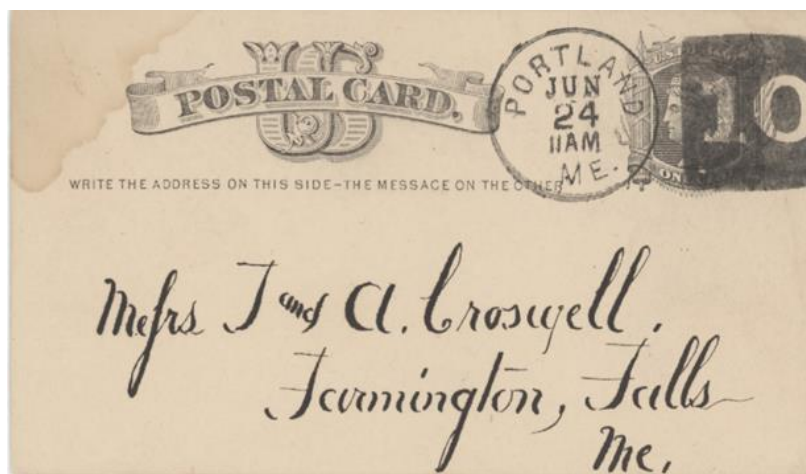 US
POSTAL CARD.
PORTLAND
JUN
24
11AM
ME.
10
ONE
WRITE THE ADDRESS ON THIS SIDE-THE MESSAGE ON THE OTHER
Messrs T and A. Croswell.
Farmington, Falls
Me,